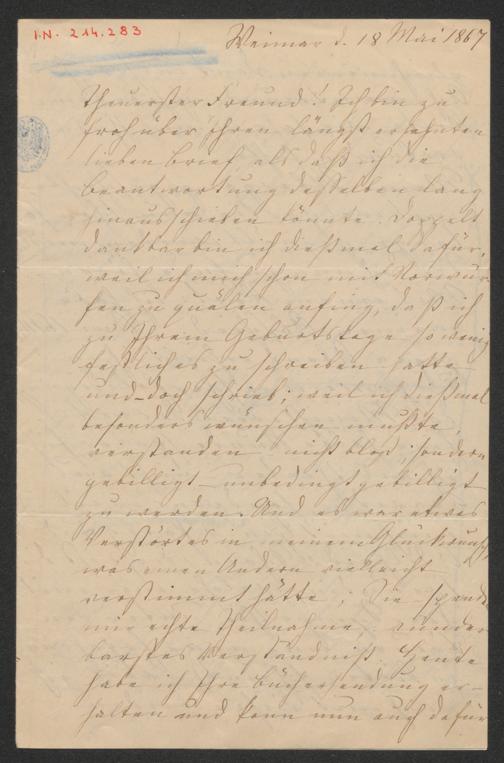 I.N. 214.283
Weimar d. 18 Mai 1867
Theuerster Freund! Ich bin zu
froh über Ihren längst ersehnten
lieben Brief als daß ich die
Beantwortung desselben lang
hinausschieben könnte. Doppelt
dankbar bin ich dießmal dafür,
weil ich mich schon mit Vorwür
fen zu quälen anfing, daß ich
zu Ihrem Geburtstage so wenig
festliches zu schreiben hatte
und doch schrieb; weil ich dießmal
besonders wünschen mußte,
verstanden nicht bloß sondern
gebilligt – unbedingt gebilligt
zu werden. Und es war etwas
Verstörtes in meinem Glückwunsch
was einen Andern vielleicht
verstimmt hätte; Sie
mir echte Theilnahme, wunder
barstes Verständniß. Heute
habe ich Ihre Büchersendung er-
halten und kann nun auch dafür